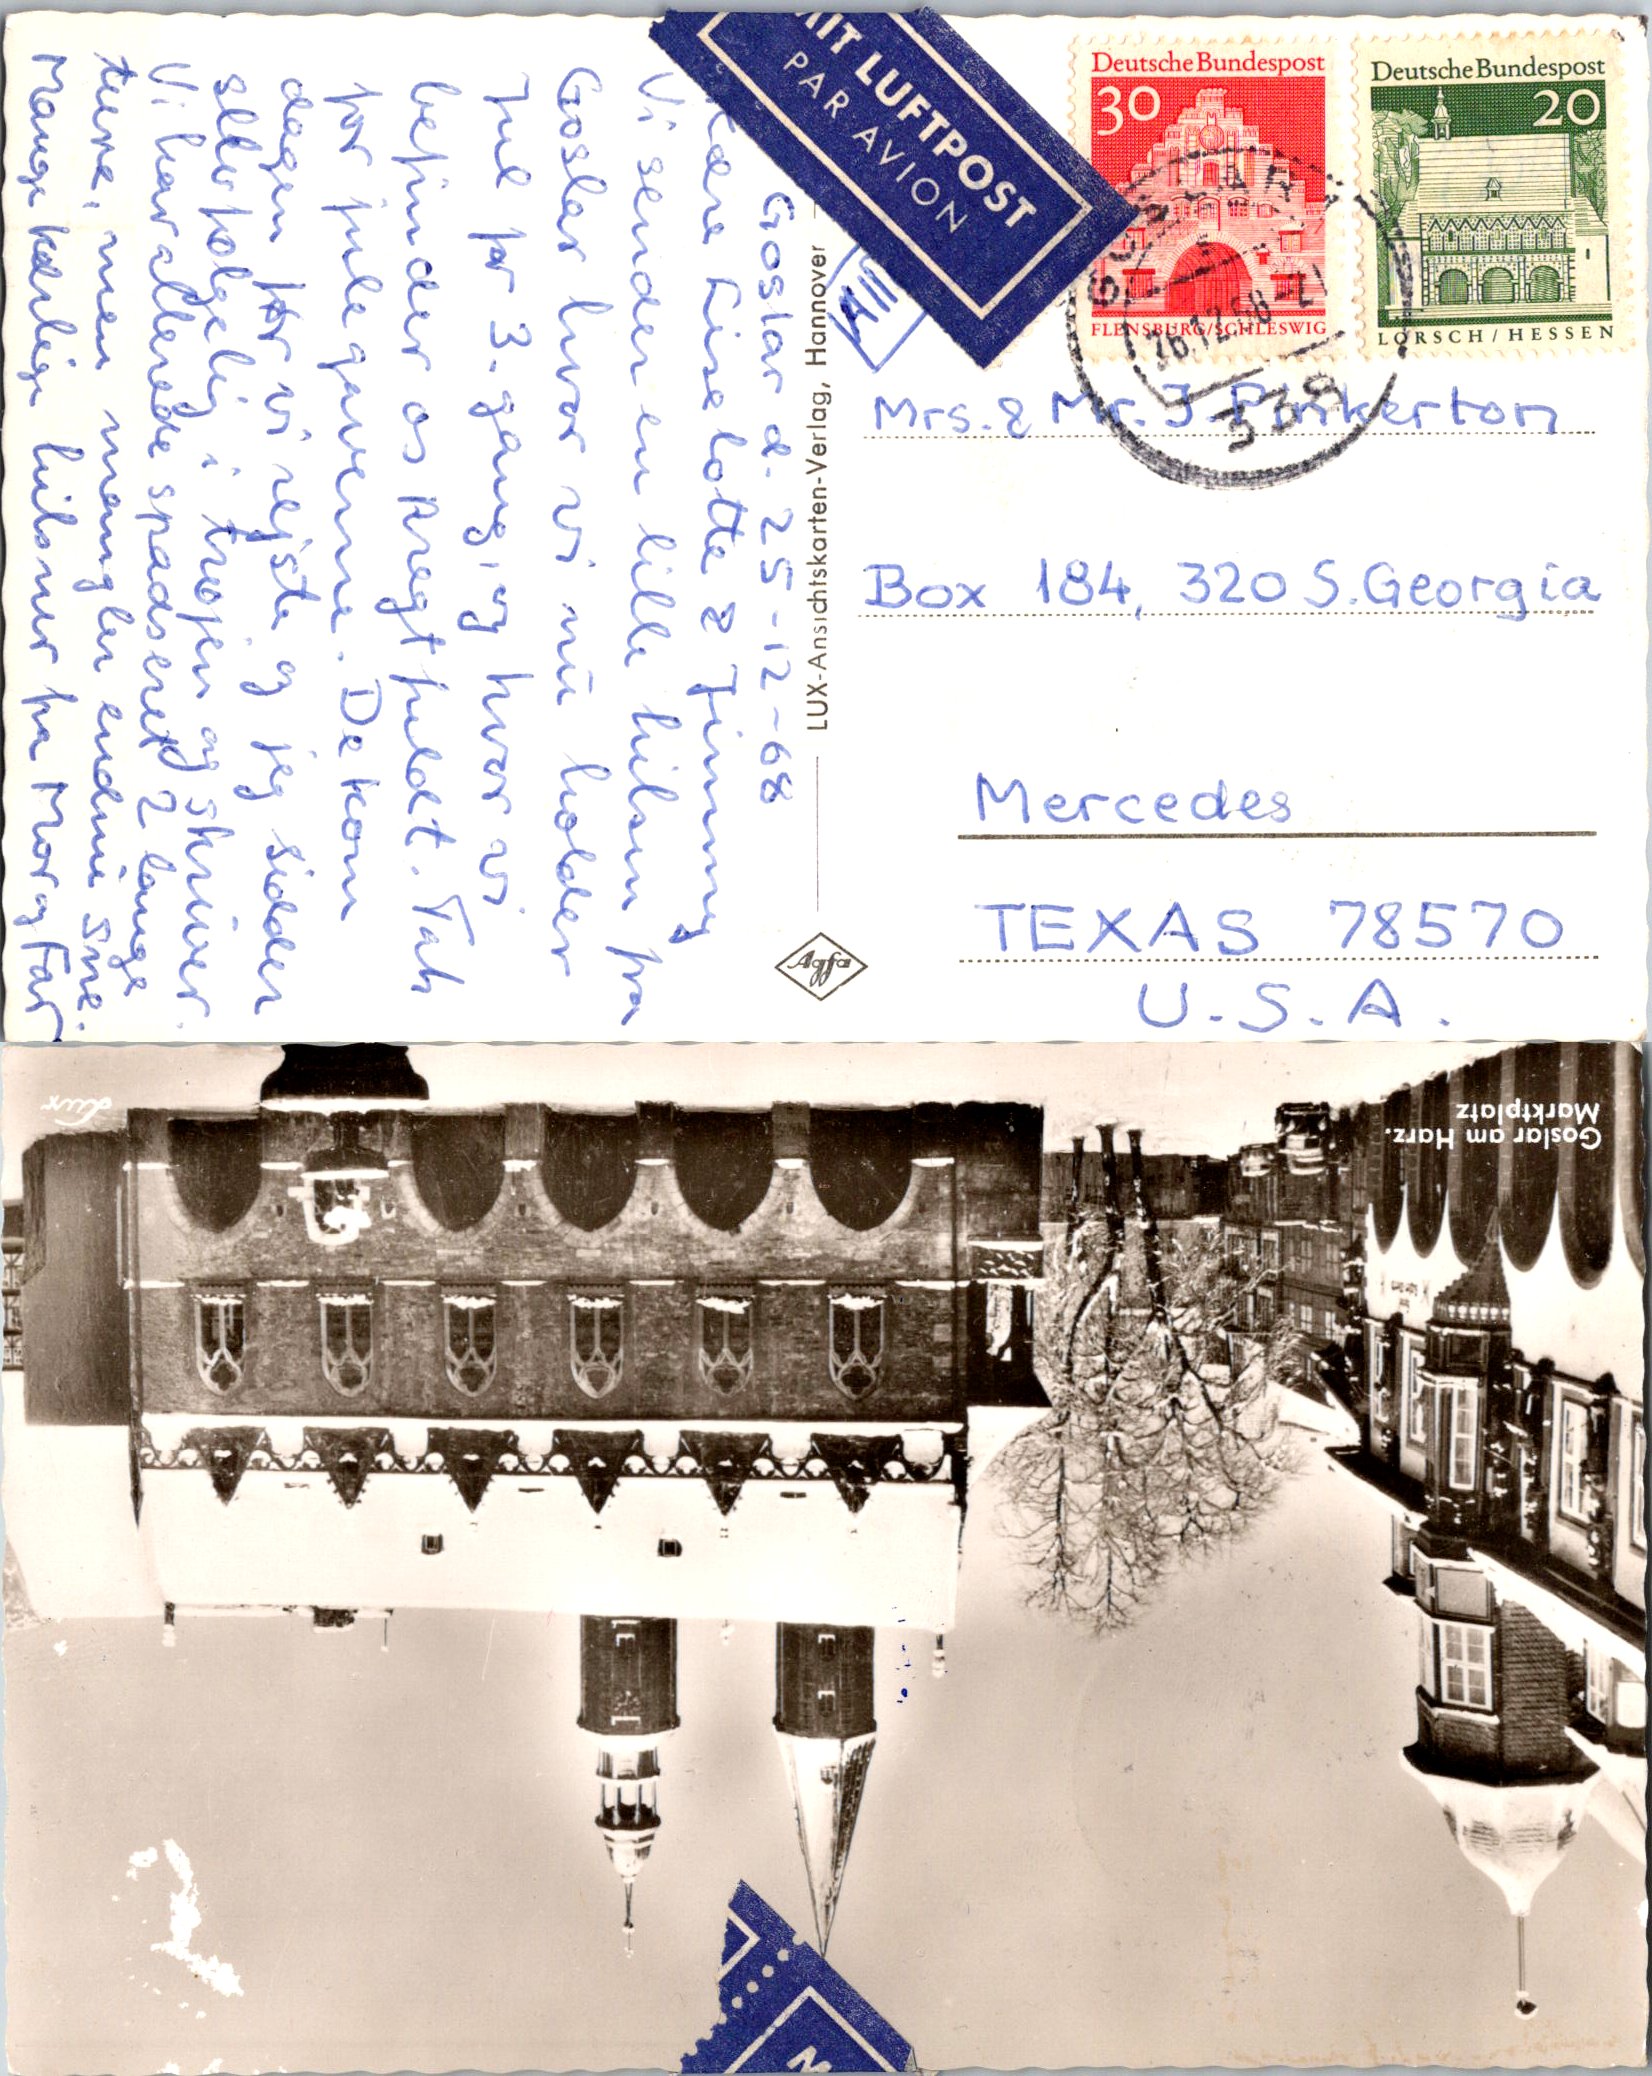 Goslar d. 25-12-68
Kære Liselotte & Jimmy
Vi sender en lille hilsen fra
Goslar hvor vi nu holder
jul for 3. gang, og hvor vi
befinder os Fregt fuldt. Tak
for julegaverne. De kom
dagen før vi rejste og jeg sidder
selvfølgelig i trøjen og skriver.
Vi har allerede spadseret 2 lange
ture, men mangler endnu sne.
Mange kærlige hilsner fra Mor og Far
MIT LUFTPOST
PAR AVION
LUX-Ansichtskarten-Verlag, Hannover
Agfa
Deutsche Bundespost
30
FLENSBURG/SCHLESWIG
Deutsche Bundespost
20
LORSCH/HESSEN
GOSLAR 1
26.12.68
338
Mrs. & Mr. J. Pinkerton
Box 184, 320 S. Georgia
Mercedes
TEXAS 78570
U.S.A.
Goslar am Harz.
Marktplatz
Lux